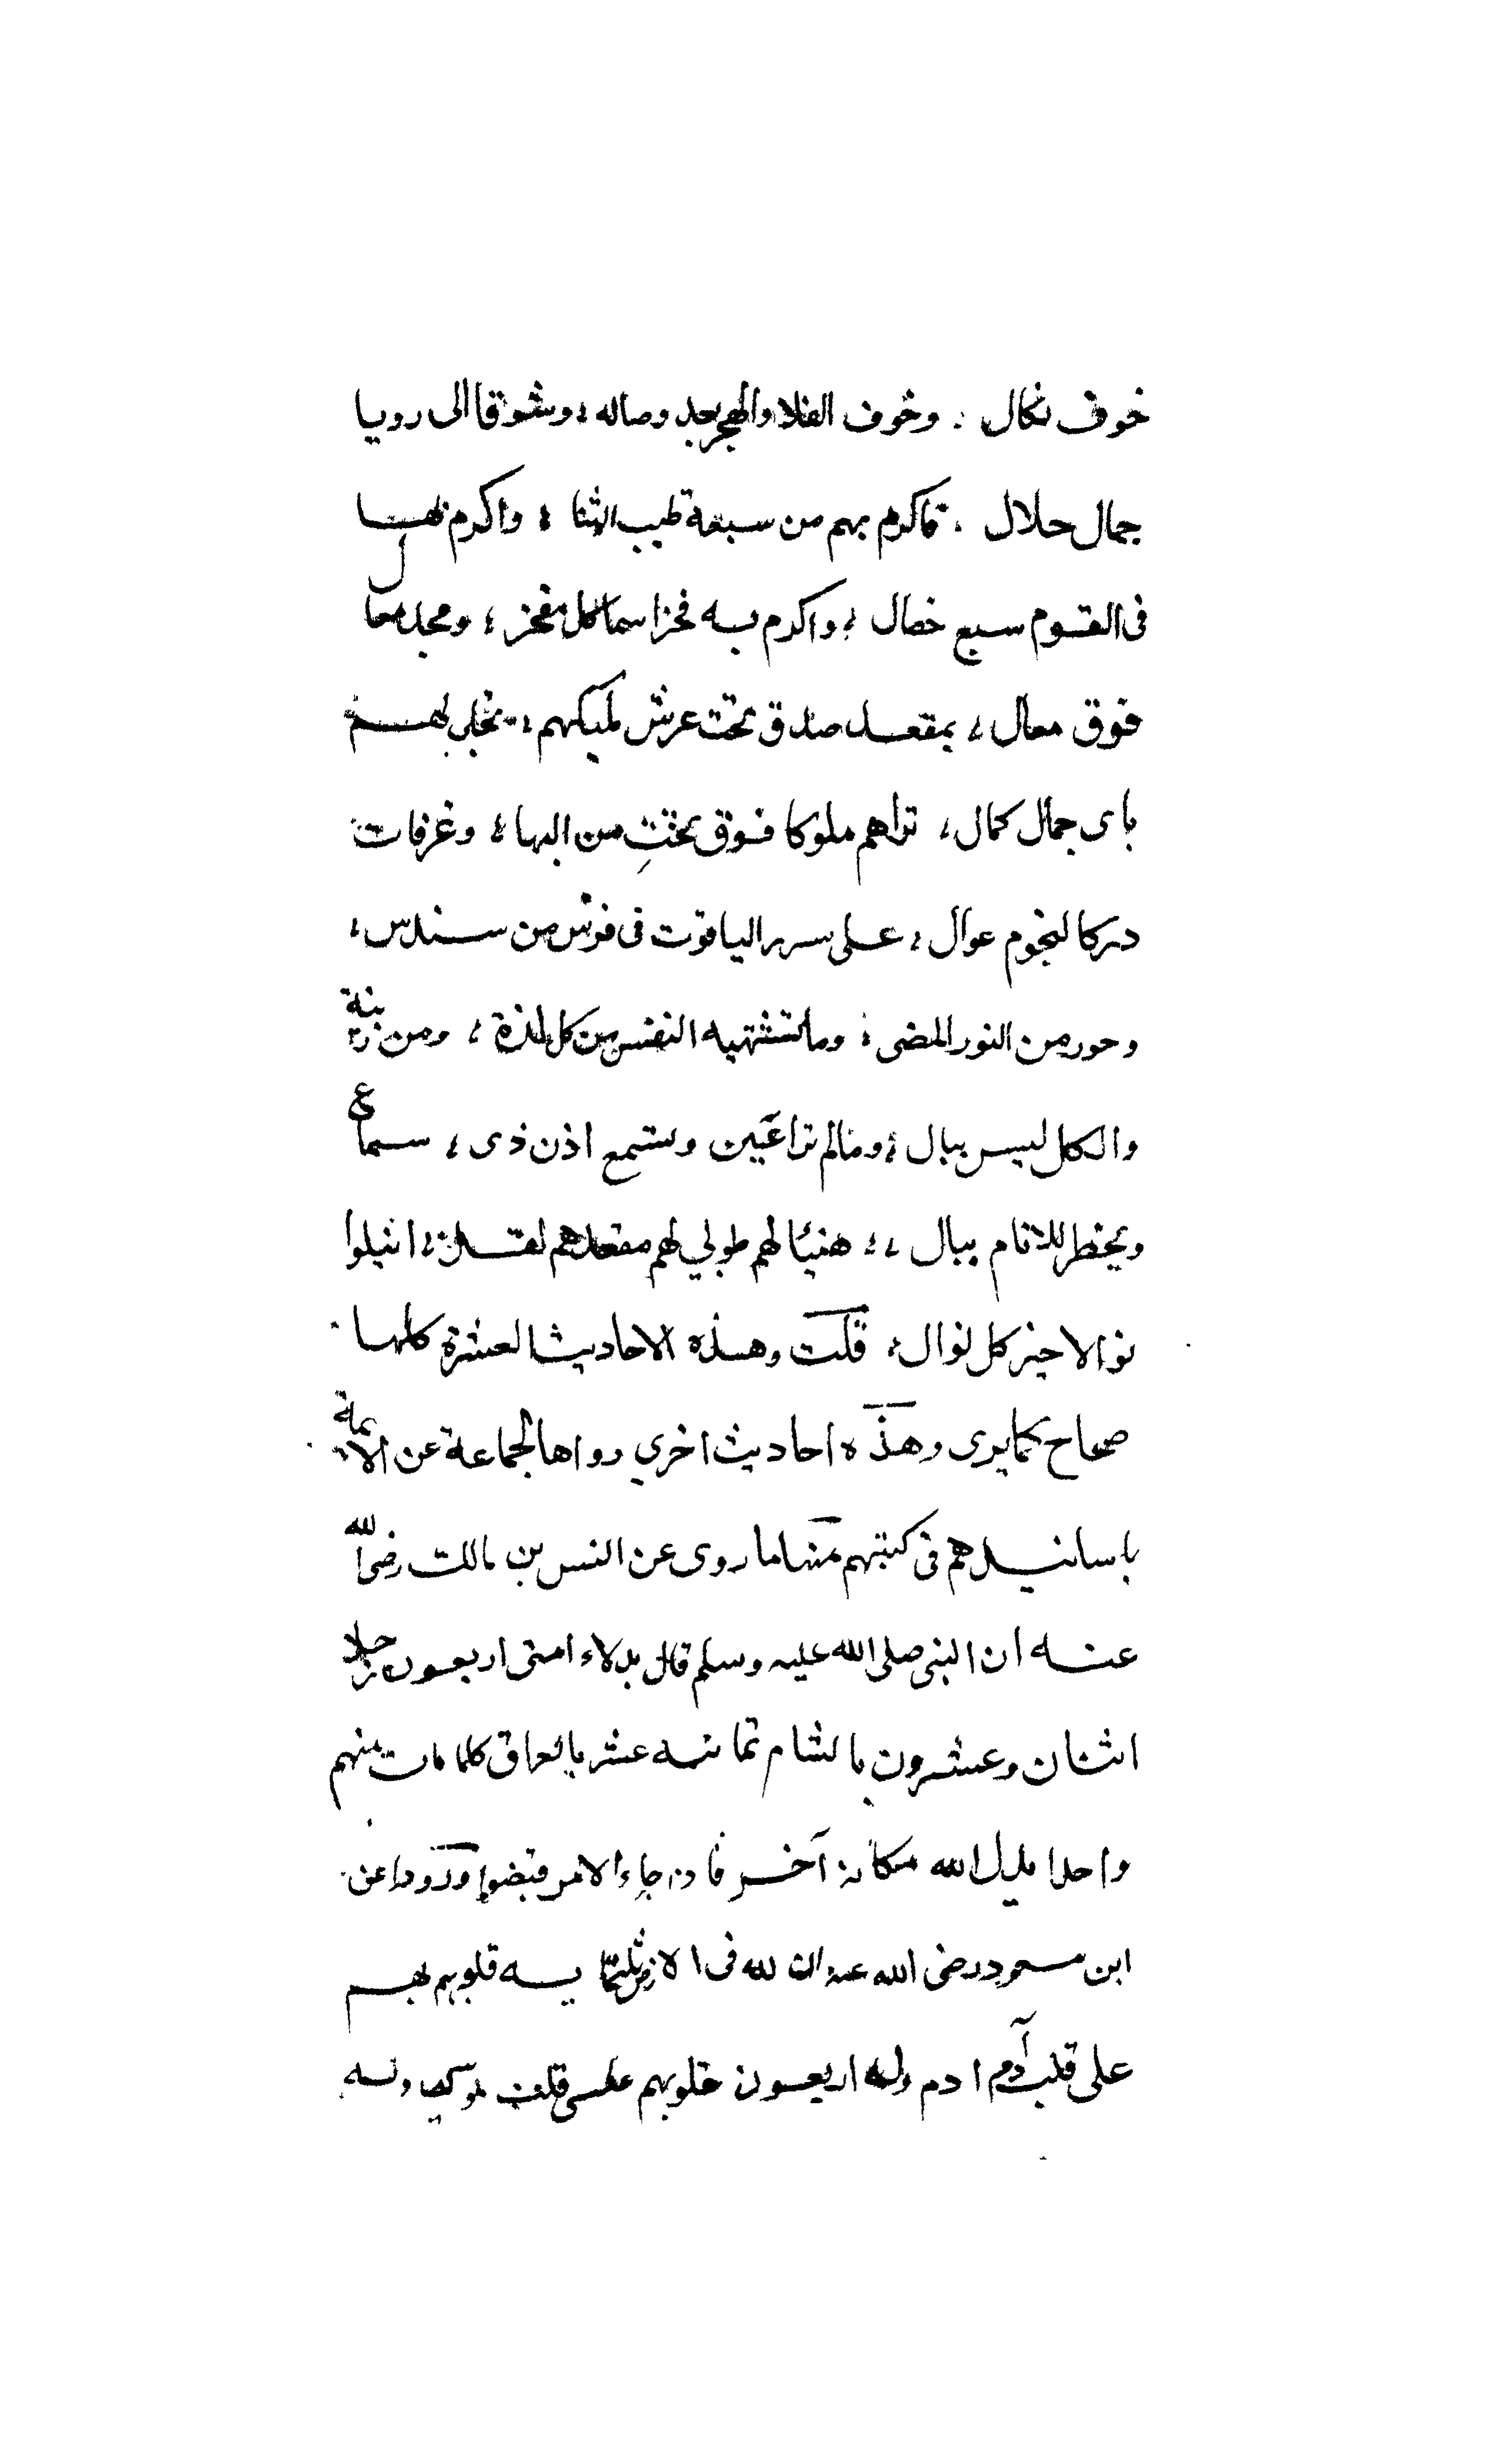 خوف نكال . وخوف القلا والهجر بعد وصاله ، وشوقا الى رويا
جمال جلال . فاكرم بهم من سبعة طيب الثنا ؛ واكرم بها
فى القوم سبع خصال ، واكرم به فخرا سما كل مفخر ؛ ومجد سما
فوق معال ، بمقعد صدق تحت عرش مليكهم ، تجلى لهم
باى جمال كمال ، تراهم ملوكا فوق تخت من البها ؛ وغرفات
در كالنجوم عوال ، على سرر الياقوت فى فرش من سندس ،
وحور من النور المضى ؛ وما تشتهيه النفس من كل لذة ، ومن زينة
والكل ليس ببال ، ومالم ترا عين وستمع اذن ذى ، سماع
ويخطر للانام ببال ، ، هنيئا لهم طوبي لهم انيلوا
نوالا خير كل نوال ، قلت وهذه الاحاديث العشرة كلها
صحاح كما يرى وهذه احاديث اخري رواها الجماعة عن الائمة
باسانيدهم فى كتبهم منها ما روى عن انس بن مالك رضى الله
عنه ان النبى صلى الله عليه وسلم قال بدلاء امتى اربعون رجلا
اثنان وعشرون بالشام ثمانيه عشر بالعراق كلما مات منهم
واحدا بدل الله مكانه آخر فاذا جاء الامر قبضوا وروواعن
ابن مسعود رضى الله عنه ان لله فى الارض ثلثمايه قلوبهم
على قلب آدم ادم وله اربعون قلوبهم على قلب موسى وله